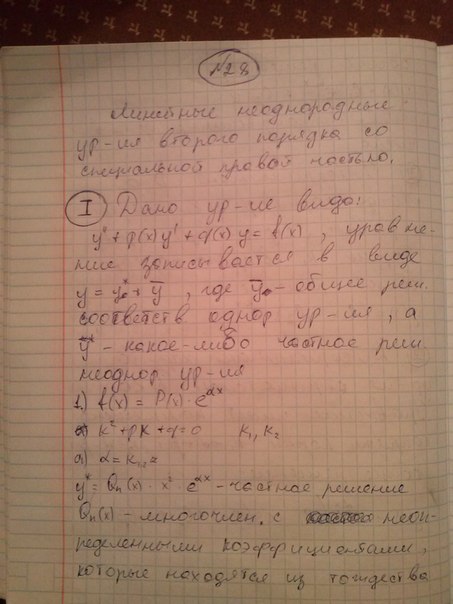 №28
Линейные неоднородные
ур-ия второго порядка со
специальной правой частью.
I Дано ур-ие вида:
y" + p(x)y' + q(x)y = f(x), уравне-
ние записывается в виде
y = y* + ȳ, где ȳ - общее реш.
соответств однор ур-ия, а
y* - какое-либо частное реш
неоднор ур-ия
1.) f(x) = P(x)·e^αx
k² + pk + q = 0 k₁, k₂
а) α = k₁,₂ =
y* = Qn(x)·x²·e^αx - частное решение
Qn(x) - многочлен с неоп-
ределенными коэффициентами,
которые находятся из тождества